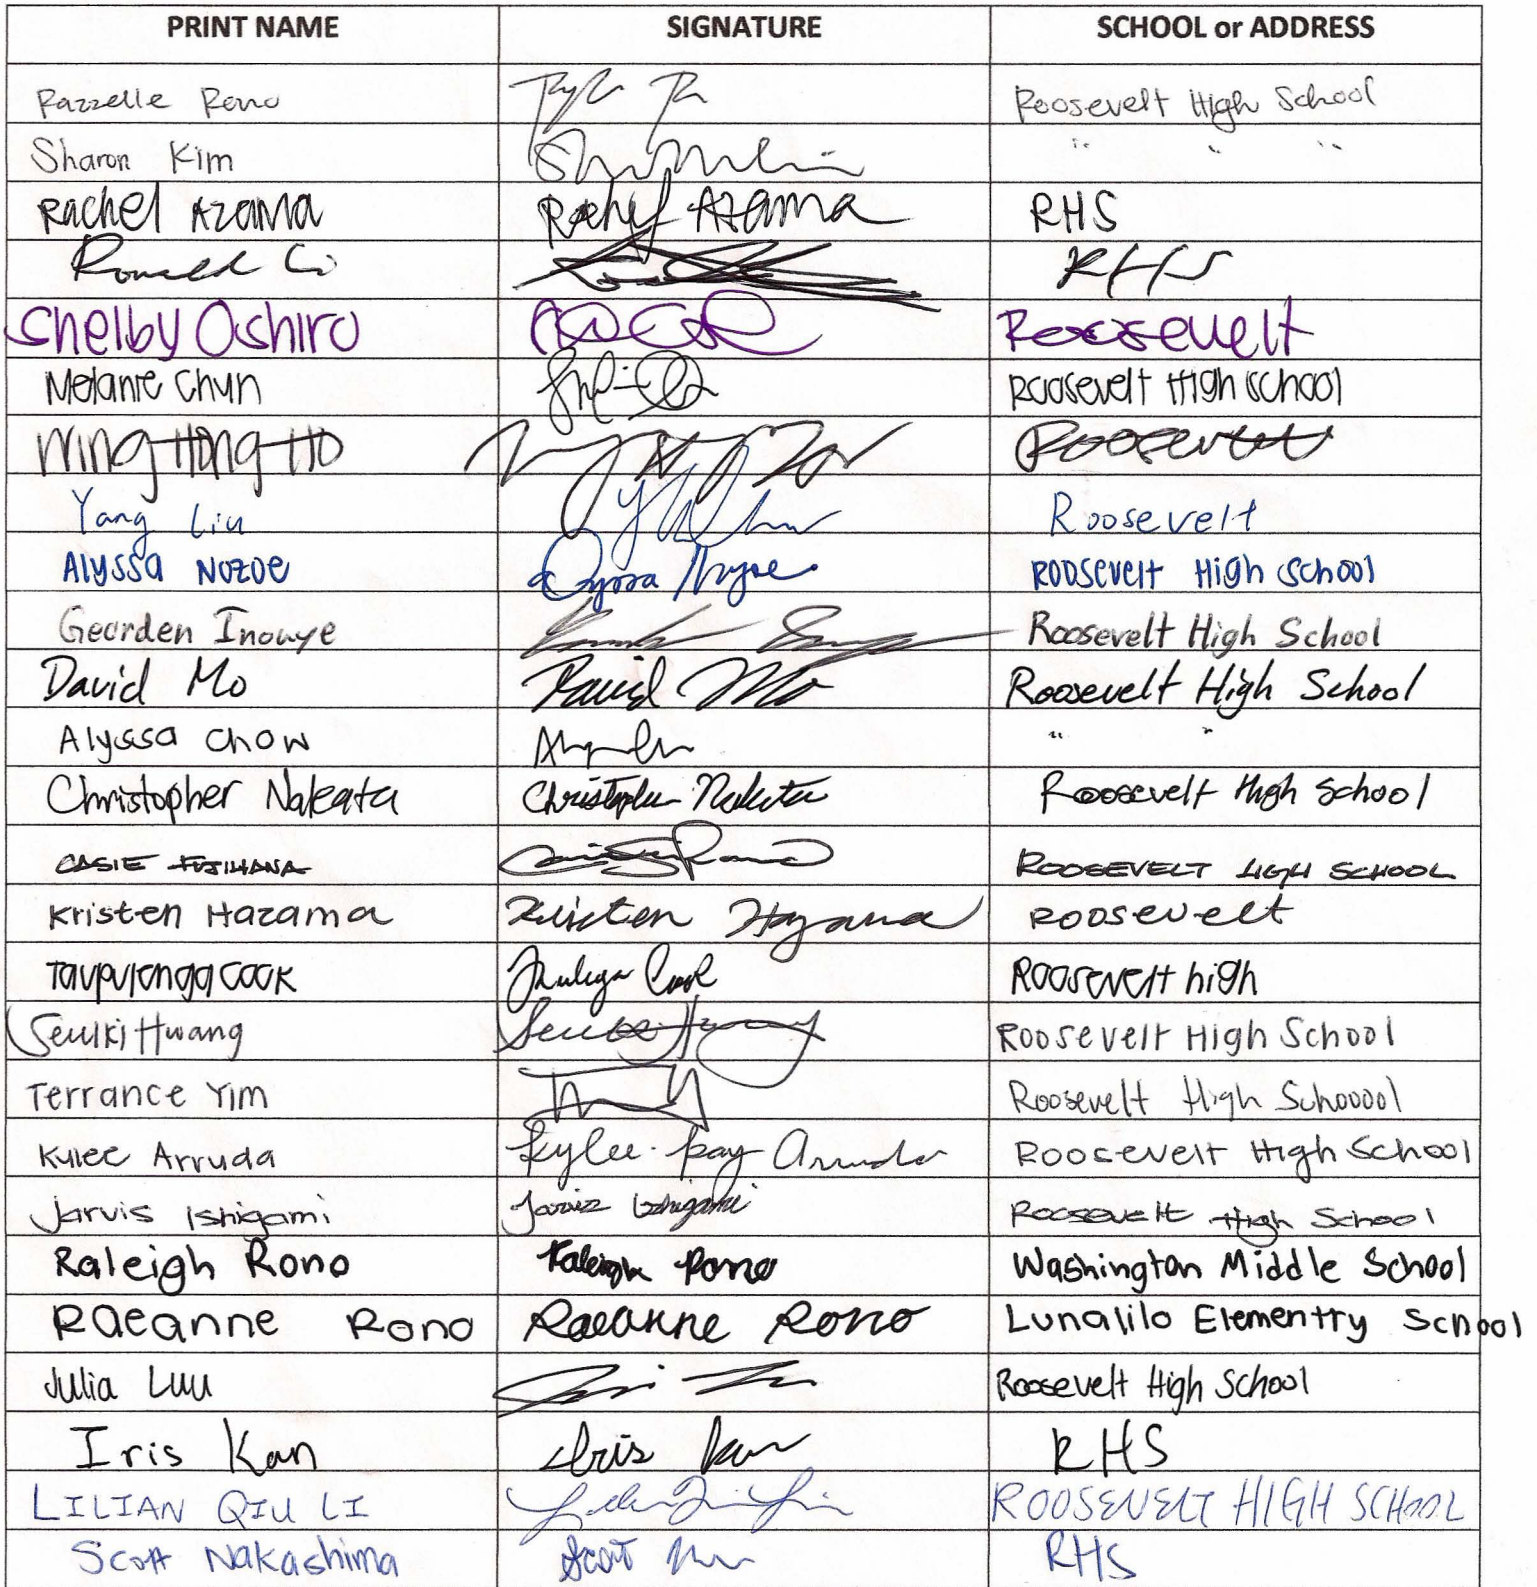 PRINT NAME SIGNATURE SCHOOL or ADDRESS
Razzelle Rono Roosevelt High School
Sharon Kim " " "
Rachel Azama Rachel Azama RHS
Ronald Li RHS
Shelby Oshiro Roosevelt
Melanie Chun Roosevelt High School
Wing Hong Ho Roosevelt
Yang Liu Roosevelt
Alyssa Nozoe Roosevelt High School
Gearden Inouye Roosevelt High School
David Mo David Mo Roosevelt High School
Alyssa Chow " "
Christopher Nakata Christopher Nakata Roosevelt High School
CASIE FUJIHANA ROOSEVELT HIGH SCHOOL
Kristen Hazama Kristen Hazama Roosevelt
Cook Cook Roosevelt high
Seulki Hwang Seulki Hwang Roosevelt High School
Terrance Yim Roosevelt High Schooool
Kylee Arruda Kylee-Ray Arruda Roosevelt High School
Jarvis Ishigami Jarvis Ishigami Roosevelt High School
Raleigh Rono Raleigh Rono Washington Middle School
Raeanne Rono Raeanne Rono Lunalilo Elementry School
Julia Luu Roosevelt High School
Iris Kan Iris Kan RHS
LILIAN QIU LI ROOSEVELT HIGH SCHOOL
Scott Nakashima Scott RHS